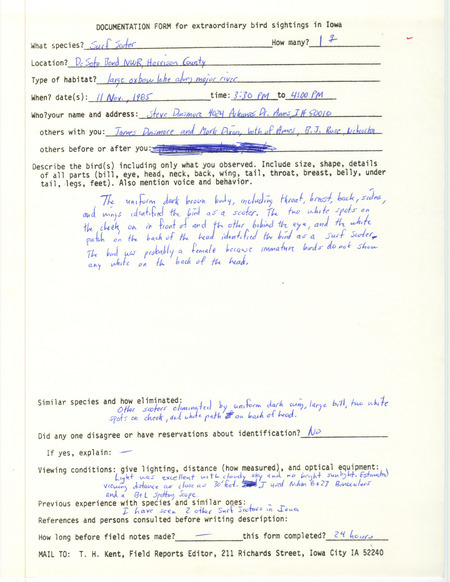 DOCUMENTATION FORM for extraordinary bird sightings in Iowa
What species? Surf Scoter How many? 1 ♀
Location? De Soto Bend NWR, Harrison County
Type of habitat? large oxbow lake along major river
When? date(s): 11 Nov., 1985 time: 3:30 PM to 4:00 PM
Who?your name and address: Steve Dinsmore 4024 Arkansas Dr. Ames, IA 50010
others with you: James Dinsmore and Mark Dixon, both of Ames, B.J. Rose,
others before or after you:
Describe the bird(s) including only what you observed. Include size, shape, details
of all parts (bill, eye, head, neck, back, wing, tail, throat, breast, belly, under
tail, legs, feet). Also mention voice and behavior.
The uniform dark brown body, including throat, breast, back, sides,
and wings identified the bird as a scoter. The two white spots on
the cheek, on in front of and the other behind the eye, and the white
patch on the back of the head identified the bird as a surf scoter.
The bird was probably a female because immature birds do not show
any white on the back of the head.
Similar species and how eliminated:
Other scoters eliminated by uniform dark wing, large bill, two white
spots on cheek, and white path on back of head.
Did any one disagree or have reservations about identification? No
If yes, explain: —
Viewing conditions: give lighting, distance (how measured), and optical equipment:
Light was excellent with cloudy sky and no bright sunlight. Estimated
viewing distance as close as 30 feet. I used Nikon 8x27 Binoculars
and a B+L Spotting Scope.
Previous experience with species and similar ones:
I have seen 2 other Surf Scoters in Iowa
References and persons consulted before writing description:
How long before field notes made? — this form completed? 24 hours
MAIL TO: T. H. Kent, Field Reports Editor, 211 Richards Street, Iowa City IA 52240